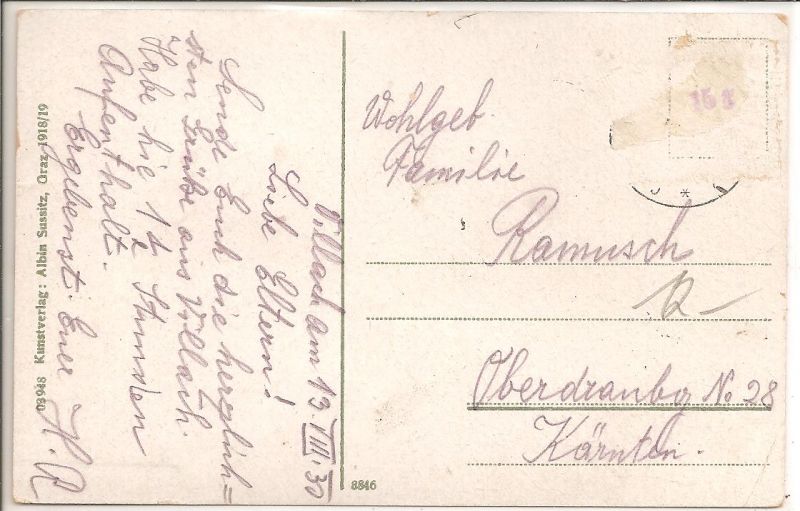 Villach am 13.VIII.30
Liebe Eltern!
Sende Euch die herzlich=
sten Grüße aus Villach.
Habe hie 1½ Stunden
Aufenthalt.
Ergebenst Euer H. R
03948 Kunstverlag: Albin Sussitz, Graz, 1918/19
8846
Wohlgeb.
Familie
Ramusch
Oberdrauburg No 28
Kärnten.